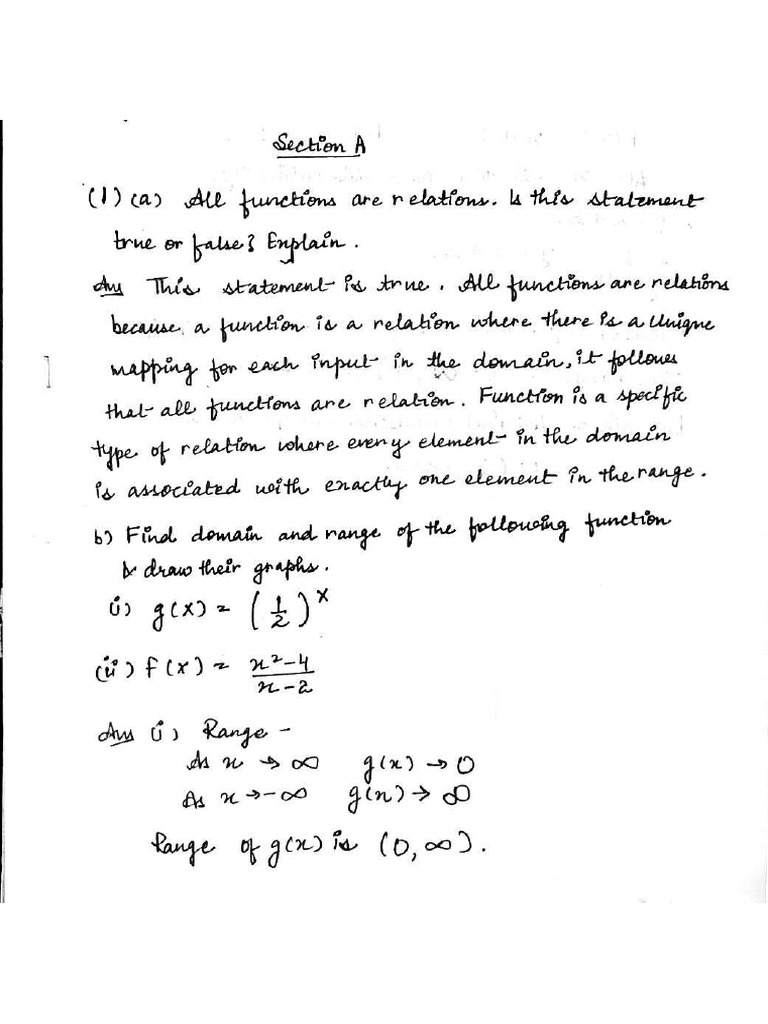 Section A
(1) (a) All functions are relations. Is this statement
true or false? Explain.
Ans This statement is true. All functions are relations
because, a function is a relation where there is a unique
mapping for each input in the domain, it follows
that all functions are relation. Function is a specific
type of relation where every element in the domain
is associated with exactly one element in the range.
b) Find domain and range of the following function
& draw their graphs.
i) g(x) = (1/2)^x
(ii) f(x) = x²-4 / x-2
Ans i) Range -
As x → ∞ g(x) → 0
As x → -∞ g(x) → ∞
Range of g(x) is (0, ∞).